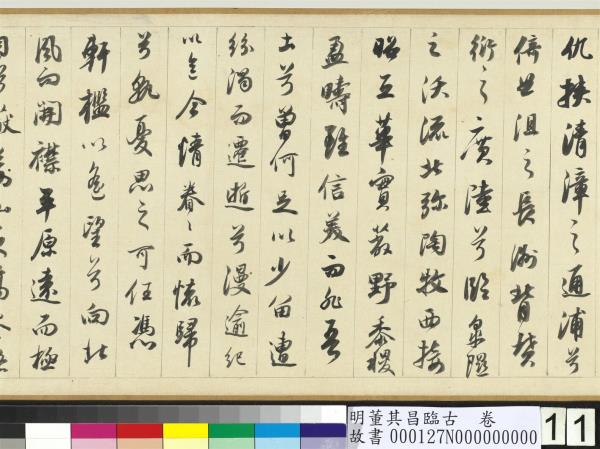 仇挾清漳之通浦兮
倚曲沮之長洲背墳
衍之廣陸兮臨皋隰
之沃流北彌陶牧西接
昭丘華實蔽野黍稷
盈疇雖信美而非吾
土兮曾何足以少留遭
紛濁而遷逝兮漫逾紀
以迄今情眷〻而懷歸
兮孰憂思之可任馮
軒檻以遙望兮向北
風而開襟平原遠而極
目兮蔽荊山之高岑
明董其昌臨古 卷
故書 000127N000000000
11